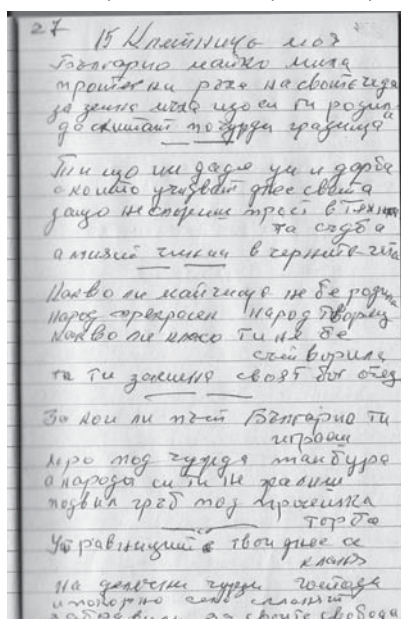 27
15 Клетнице моя
Българио майко мила
протегни ръка на своите чеда
за земна мъка що си ги родила
да скитат по чужди градища
Ти що им даде ум и дарба
с които учудват днес света
защо не спориш трост в тяхната
та съдба
а пишеш в черните
Какво ли майчице не бе родила
народ прекрасен народ творец
какво ли кляко ти не бе
сътворила
та ти заменя своят бог отец
За кой ли път Българио ти
играеш
хоро под чужда танбура
а народа си ти не жалиш
подвил гръб под просешка
торба
Управниците твои днес се
кланят
на далечни чужди господа
и покорно село
забравили за своите свобода